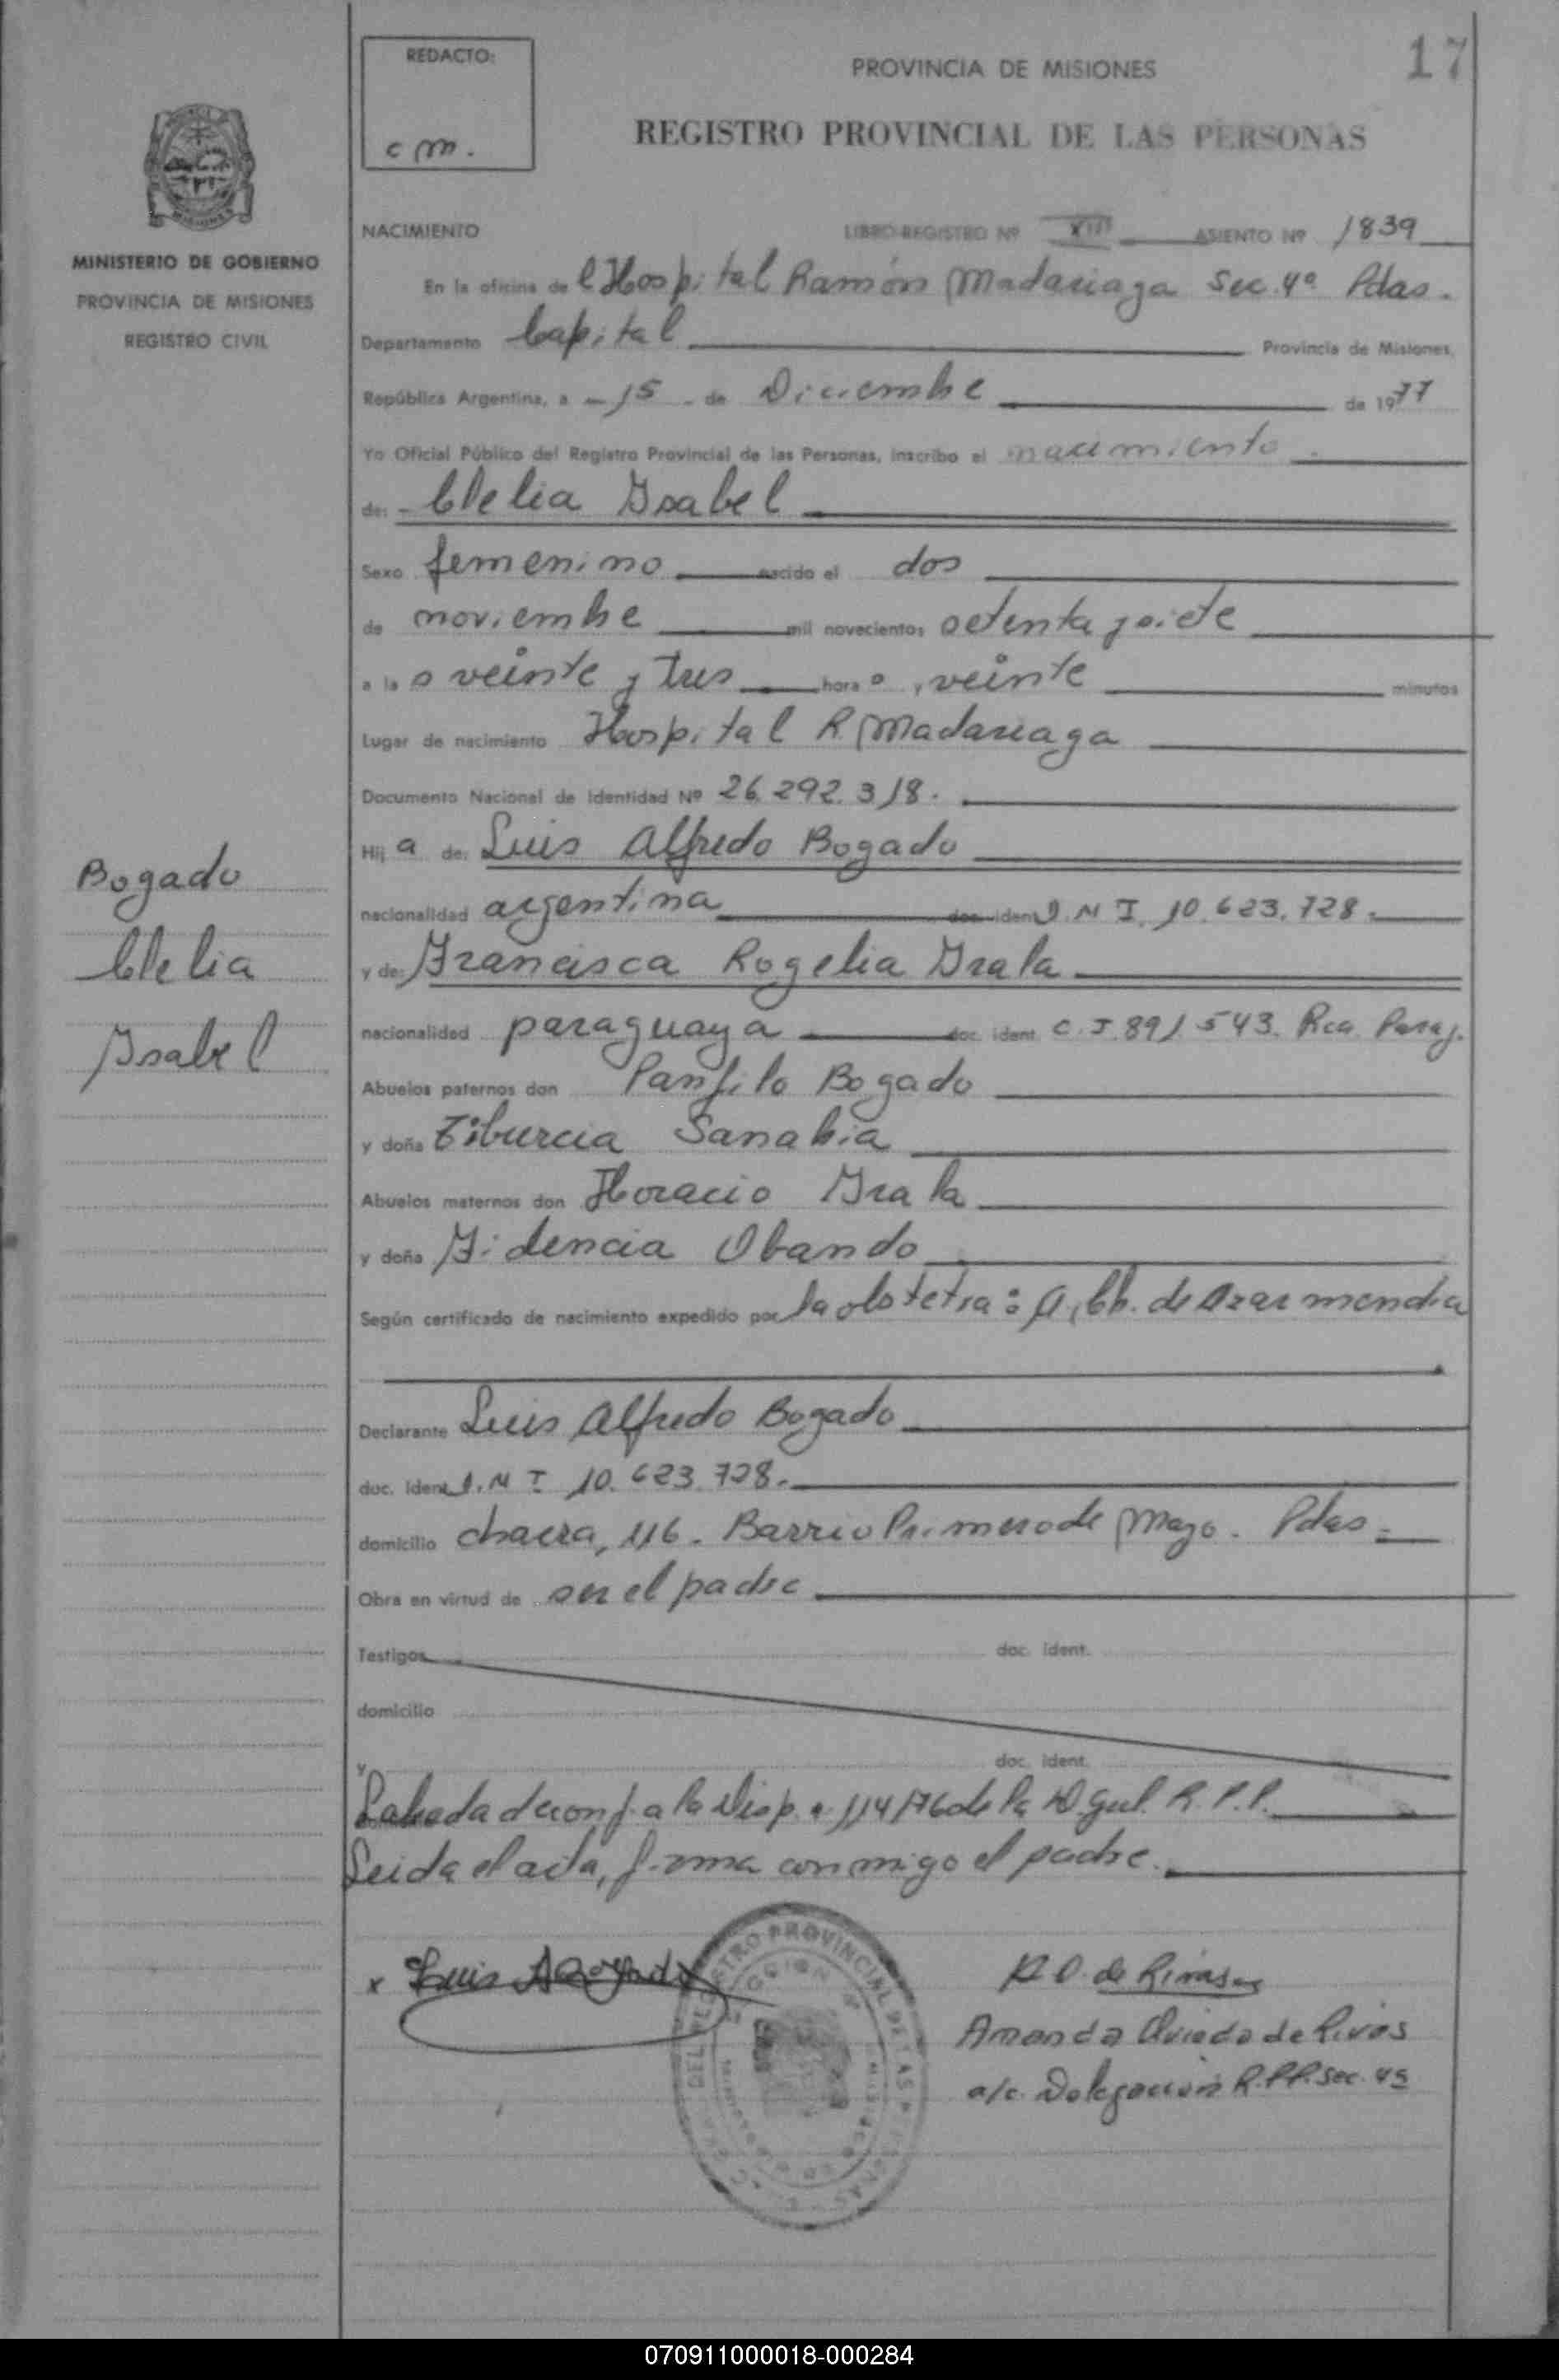 REDACTO:
c m.
PROVINCIA DE MISIONES
17
REGISTRO PROVINCIAL DE LAS PERSONAS
MINISTERIO DE GOBIERNO
PROVINCIA DE MISIONES
REGISTRO CIVIL
NACIMIENTO LIBRO REGISTRO Nº XIII ASIENTO Nº 1839
En la oficina de l Hospital Ramón Madariaga Sec. 4ª Pdas.
Departamento Capital Provincia de Misiones,
República Argentina, a 15 de Diciembre de 1977
Yo Oficial Público del Registro Provincial de las Personas, inscribo el nacimiento
de: Clelia Isabel
Sexo femenino nacido el dos
de noviembre mil novecientos setenta y siete
a la s veinte y tres hora s, veinte minutos
Lugar de nacimiento Hospital R. Madariaga
Documento Nacional de Identidad Nº 26.292.318.
Hij a de: Luis Alfredo Bogado
nacionalidad argentina doc. ident. D.N I. 10.623.728.
y de: Francisca Rogelia Irala
nacionalidad paraguaya doc. ident. C.I. 891.543. Rca. Parag.
Abuelos paternos don Panfilo Bogado
y doña Tiburcia Sanabia
Abuelos maternos don Horacio Irala
y doña Fidencia Obando
Según certificado de nacimiento expedido por la obstetra: A. Ch. de Azarmendia
Declarante Luis Alfredo Bogado
doc. ident. D.N I 10.623.728.
domicilio chacra, 116. Barrio Primero de Mayo. Pdas.
Obra en virtud de ser el padre
Testigos doc. ident.
domicilio
y doc. ident.
Labrada de conf. a la Disp. 114/76 de la D. Gral. R.P.P.
Leida el acta, firma conmigo el padre.
Bogado
Clelia
Isabel
x Luis A Bogado
A O. de Rivas
Amanda Oviedo de Rivas
a/c. Delegación R.P.P. Sec. 4ª
070911000018-000284